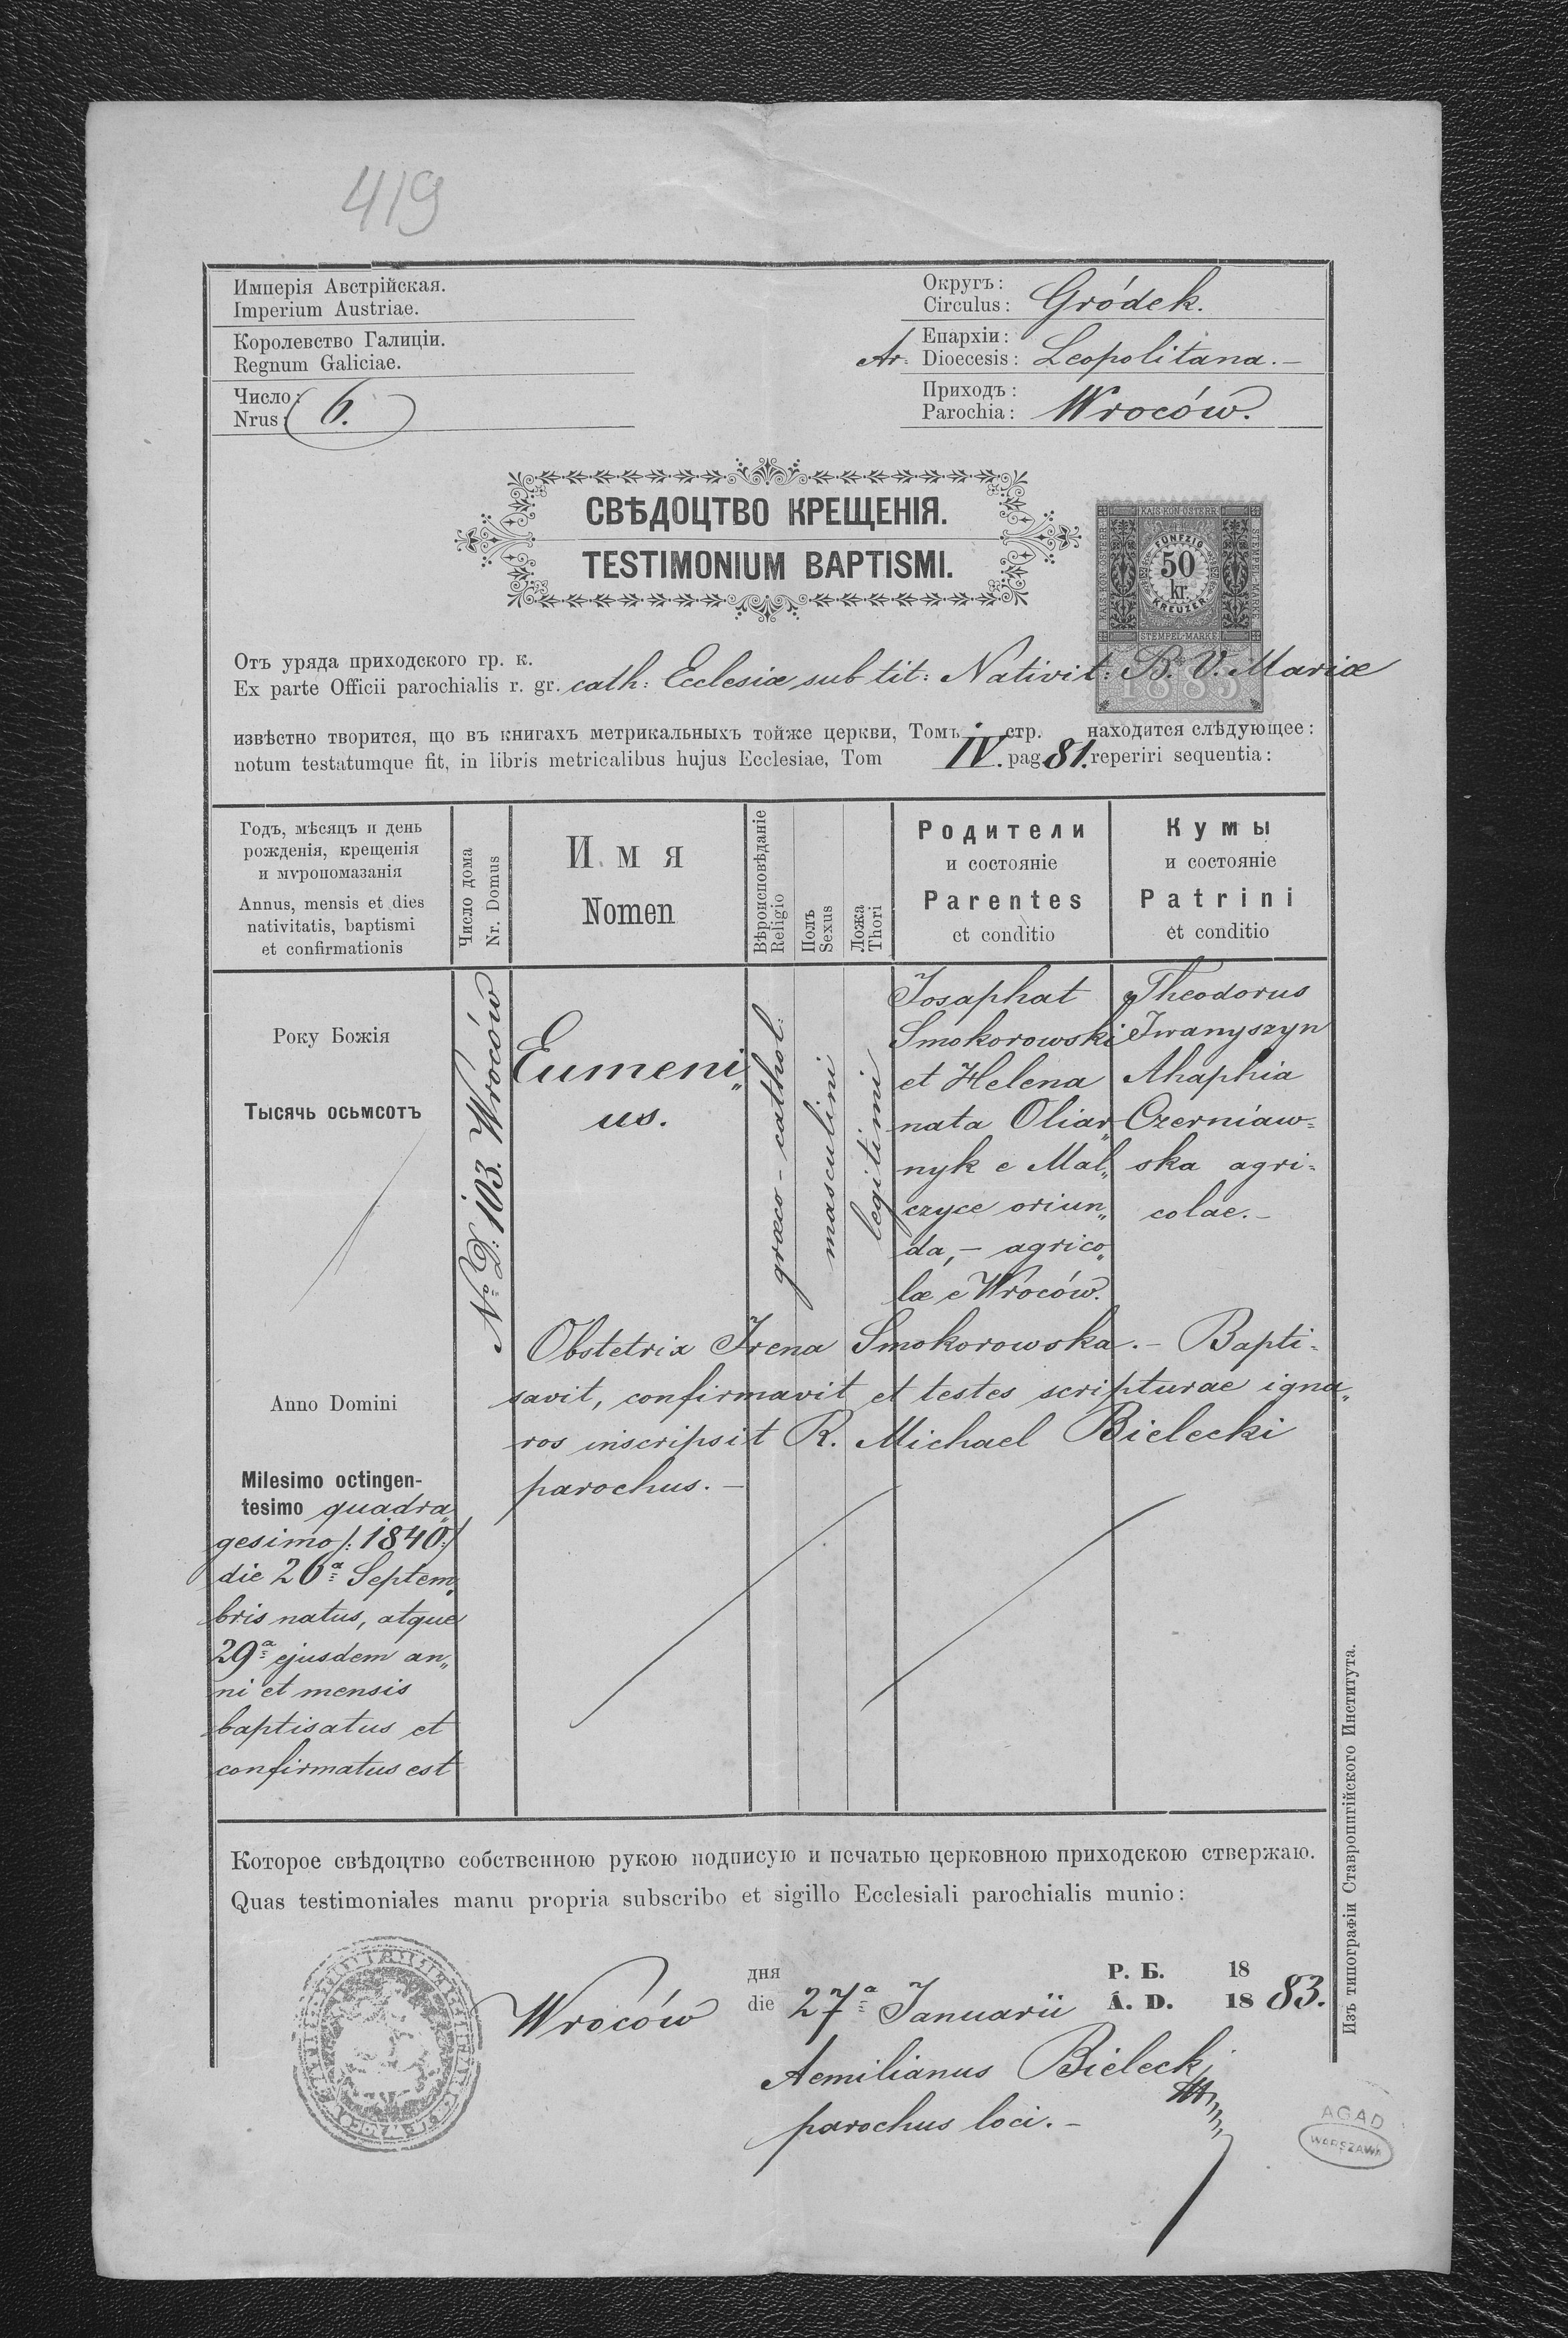 419
Имперія Австрійская.
Imperium Austriae.
Королевство Галиціи.
Regnum Galiciae.
Число:
Nrus: 6.
Округъ:
Circulus: Gródek.
Епархіи:
Ar: Dioecesis: Leopolitana.–
Приходъ:
Parochia: Wroców.
СВѢДОЦТВО КРЕЩЕНІЯ.
TESTIMONIUM BAPTISMI.
KAIS. KÖN. ÖSTERR.
FÜNFZIG
50
kr.
KREUZER
STEMPEL-MARKE
1883
Отъ уряда приходского гр. к.
Ex parte Officii parochialis r. gr. cath: Ecclesiæ sub tit: Nativit: B. V. Mariæ
извѣстно творится, що въ книгахъ метрикальныхъ тойже церкви, Томъ стр. находится слѣдующее:
notum testatumque fit, in libris metricalibus hujus Ecclesiae, Tom IV. pag 81. reperiri sequentia:
Годъ, мѣсяцъ и день
рожденія, крещенія
и мѵропомазанія
Annus, mensis et dies
nativitatis, baptismi
et confirmationis
Число дома
Nr. Domus
Имя
Nomen
Вѣроисповѣданіе
Religio
Полъ
Sexus
Ложа
Thori
Родители
и состояніе
Parentes
et conditio
Кумы
и состояніе
Patrini
et conditio
Року Божія
Тысячь осьмсотъ
Anno Domini
Milesimo octingen-
tesimo quadra„
gesimo /: 1840 :/
die 26ª Septem„
bris natus, atque
29ª ejusdem an„
ni et mensis
baptisatus et
confirmatus est
Nº D: 103. Wroców
Eumeni„
us.
græco-cathol:
masculini
legitimi
Josaphat
Smokorowski
et Helena
nata Oliar„
nyk e Mal„
czyce oriun„
da,– agrico„
læ e Wroców.
Theodorus
Iwanyszyn
Ahaphia
Czerniaw=
ska agri=
colae.–
Obstetrix Irena Smokorowska.– Bapti=
savit, confirmavit et testes scripturae igna„
ros inscripsit R. Michael Bielecki
parochus.–
Которое свѣдоцтво собственною рукою подписую и печатью церковною приходскою ствержаю.
Quas testimoniales manu propria subscribo et sigillo Ecclesiali parochialis munio:
Wroców
дня Р. Б. 18
die 27ª Januarii A. D. 1883.
Aemilianus Bielecki
parochus loci.–
Изъ типографіи Ставропигійского Института.
AGAD
WARSZAWA